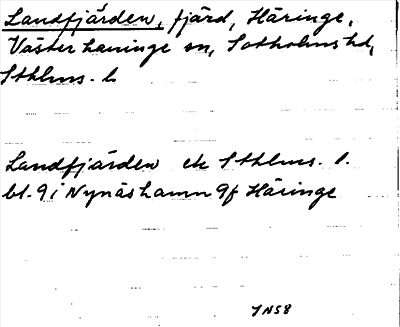 Landfjärden, fjärd, Häringe,
Västerhaninge sn, Sotholms hd,
Sthlms. l.
Landfjärden ek Sthlms. l.
bl. 9i Nynäshamn 9f Häringe
JNS8